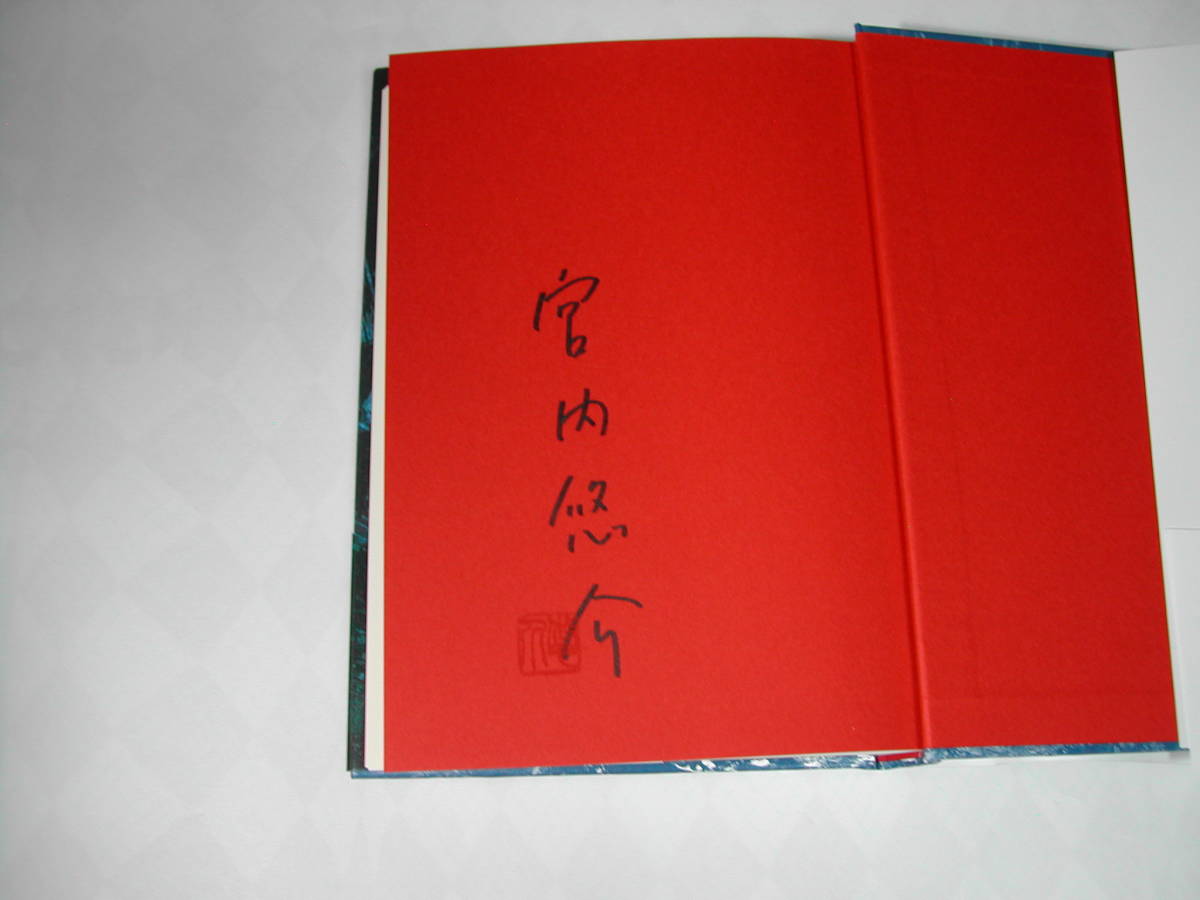 宮内悠介